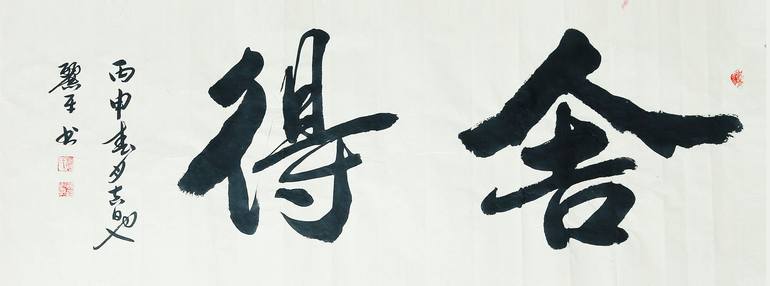 舍得
丙申春月吉日
麗平书